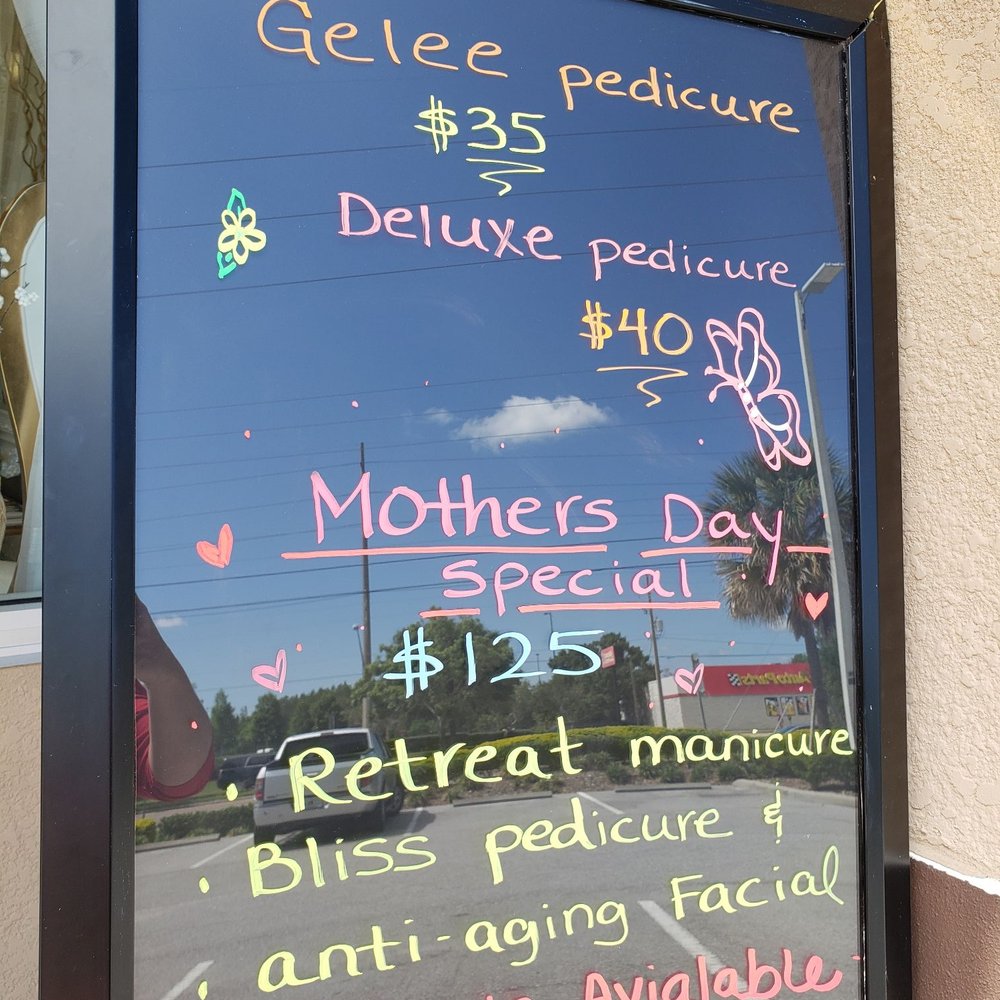 Gelee pedicure
$35
Deluxe pedicure
$40
Mothers Day
special
$125
• Retreat manicure
• Bliss pedicure &
• anti-aging Facial
Avialable
AutoParts